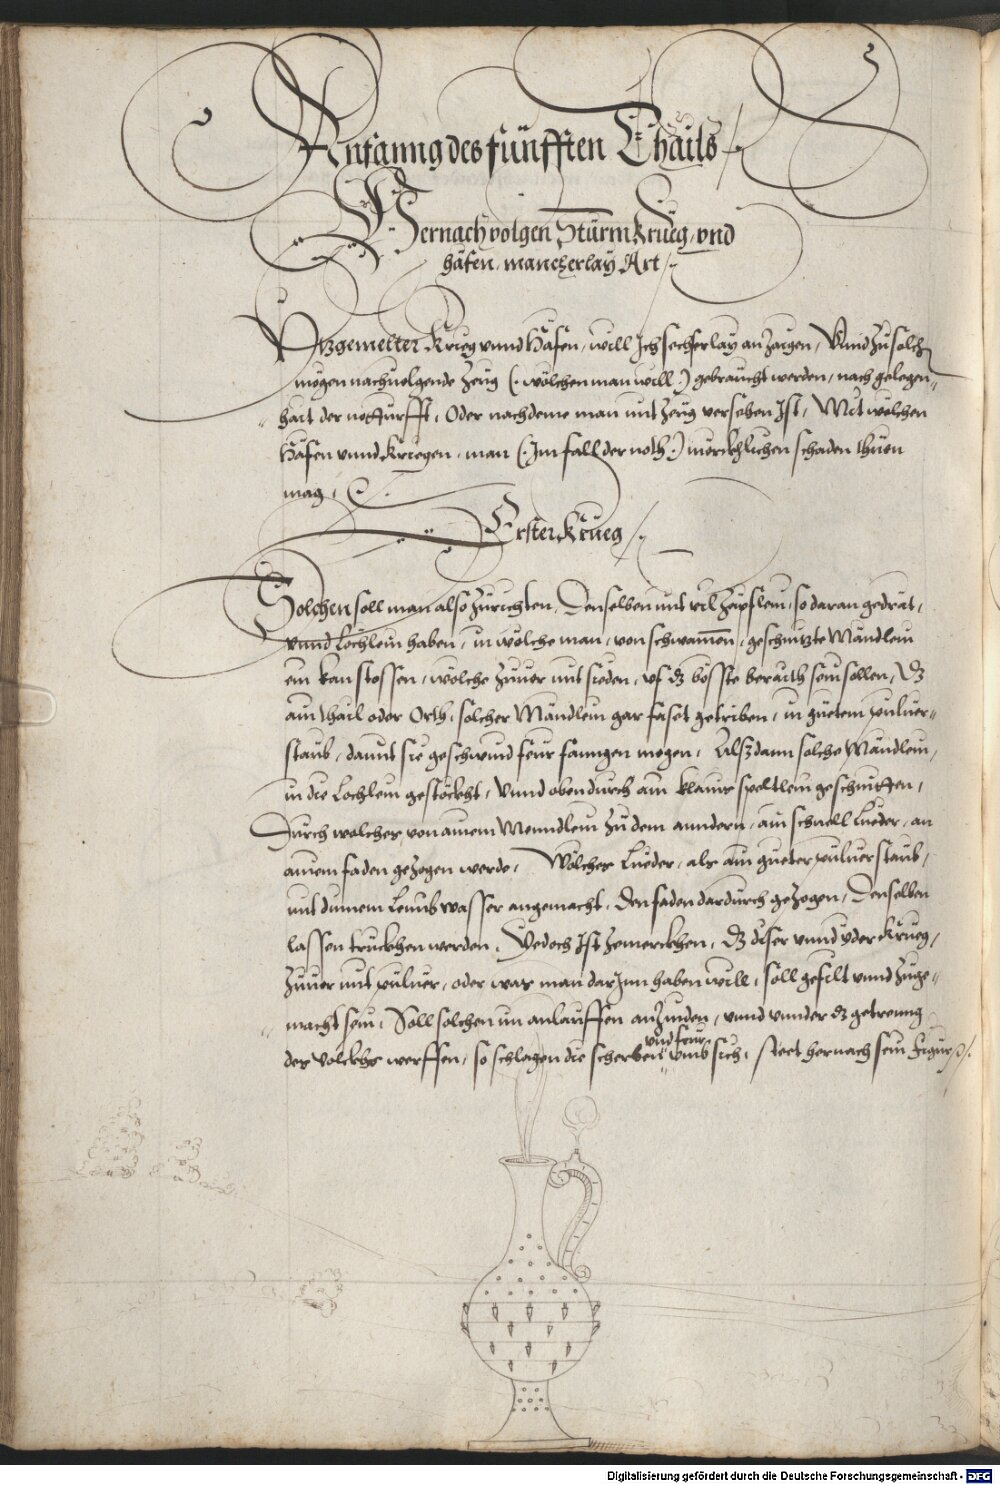 Anfanng des fünfften Thails
Hernach volgen Sturm Krueg, vnd
häfen, mancherlay Art
Itzgemelter Krueg vnnd Häfen, will Ich secherlay anzaigen, Vnnd zu solchen
mögen nachuolgende Zeug (. wölchen man will .) gebraucht werden, nach gelegen=
hait der notturfft, Oder nachdeme man mit Zeug versehen Ist, Mit wölchen
Häfen vnnd Kruegen, man (. Im fall der noth .) mörckhlichen schaden thuen
mag.
Erster Krueg
Solchen soll man also Zurichten, Denselben mit vil Zäpflein, so daran gedrät,
vnnd Lochlein haben, in wölche man, von schwamen, geschnitzte Mändlein
ein kan stossen, wölche Zuuor mit sieden, vf dz böste beraith sein sollen, Dz
ain thail oder Orth, solcher Mändlein gar fasst getriben, in guetem puluer=
staub, damit sie geschwind feur fanngen mögen, Alsdann solche Mändlein,
in die Lochlein gesteckht, Vnnd oben durch ain klains speltlein geschnitten,
Durch welches, von ainem Menndlein zu dem anndern, ain schnell Lueder, an
ainem faden gezogen werde, Wölches Lueder, als ain gueter puluerstaub,
mit dinnem Leimbwasser angemacht, den faden dardurch gezogen, Denselben
lassen truckhen werden, Yedoch Ist zemerckhen, Dz diser vnnd yder Krueg,
Zuuor mit puluer, oder was man darJnn haben will, soll gefilt vnnd Zuge=
macht sein, Soll solchen im anlauffen anzinden, vnnd vnnder dz getreng
des volckhs werffen, so schlagen die scherben vnd feur vmb sich, steet hernach sein Figur
Digitalisierung gefördert durch die Deutsche Forschungsgemeinschaft - DFG